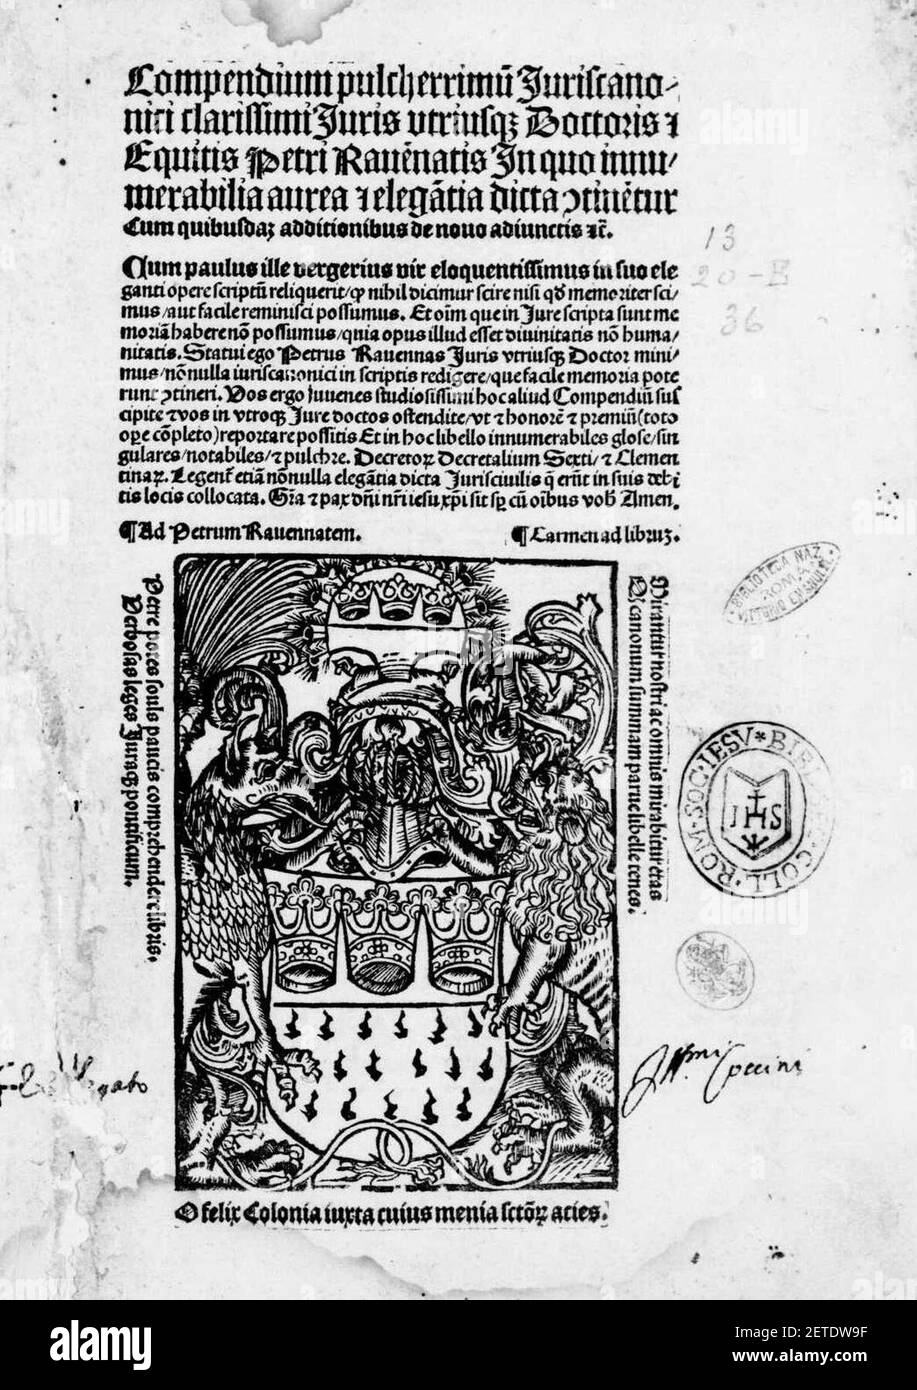 Compendium pulcherrimū Juriscano-
nici clarissimi Juris vtriusqꝫ Doctoris ⁊
Equitis Petri Rauēnatis In quo innu/
merabilia aurea ⁊ elegātia dicta ꝯtinētur
Cum quibusdaꝫ additionibus de nouo adiunctis ⁊c̄.
Qum paulus ille vergerius vir eloquentissimus in suo ele
ganti opere scriptū reliquerit/ꝙ nihil dicimur scire nisi qđ memoriter sci/
mus/aut facile reminisci possumus. Et oīm que in Jure scripta sunt me
moriā habere nō possumus/quia opus illud esset diuinitatis nō huma/
nitatis. Statui ego Petrus Rauennas Juris vtriusqꝫ Doctor mini/
mus/nō nulla iuriscanonici in scriptis redigere/que facile memoria pote
runt ꝯtineri. Vos ergo Juuenes studiosissimi hoc aliud Compendiū sus
cipite ⁊ vos in vtroqꝫ Jure doctos ostendite/vt ⁊ honorē ⁊ premiū (toto
oꝑe cōpleto) reportare possitis Et in hoc libello innumerabiles glose/sin
gulares/notabiles/⁊ pulchre. Decretoꝝ Decretalium Sexti/⁊ Clemen
tinaꝝ. Legent̄ etiā nōnulla elegātia dicta Juriscivilis q̄ erūt in suis debi
tis locis collocata. Gr̄a ⁊ pax dn̄i nr̄i iesu xp̄i sit sꝑ cū oībus vob̄ Amen.
¶ Ad Petrum Rauennatem. ¶ Carmen ad libruꝫ.
Petre potes solus paucis comprehendere libris.
Verbosas leges Juraqꝫ pontificum.
Mirantur nostri ac omnis mirabitur etas
Q canonum summam parue libelle tenes.
O felix Colonia iuxta cuius menia sctōꝝ acies.
13
20-E
36
BIBLIOTECA NAZ
ROMA
VITTORIO EMANUELE
BIBL
COLL·ROM·SOC·IESV
IHS
Coccini
alamy
Image ID: 2ETDW9F
www.alamy.com